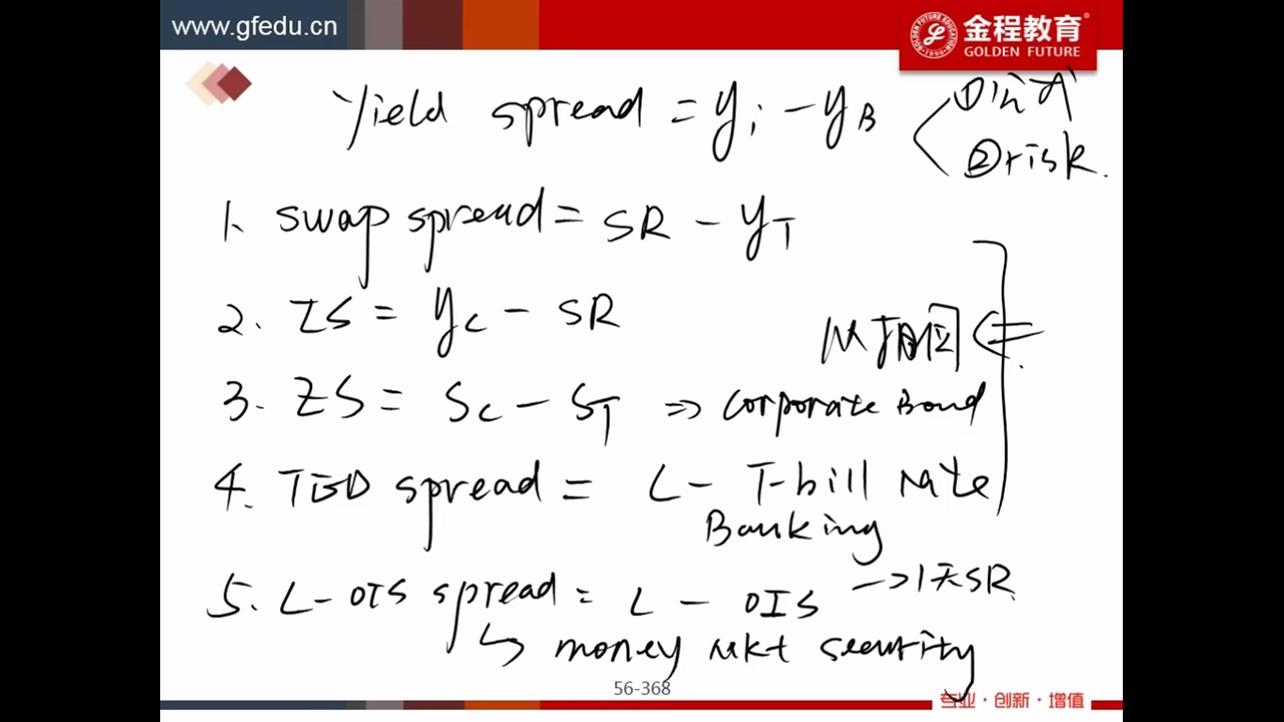 www.gfedu.cn
金程教育
GOLDEN FUTURE
Yield spread = yi - yB
①公式
②risk.
1. swap spread = SR - yT
2. IS = yC - SR
3. ZS = SC - ST => corporate Bond
4. TED spread = L - T-bill rate
Banking
5. L-OIS spread = L - OIS → 1天SR
↳ money mkt security
56-368
专业·创新·增值